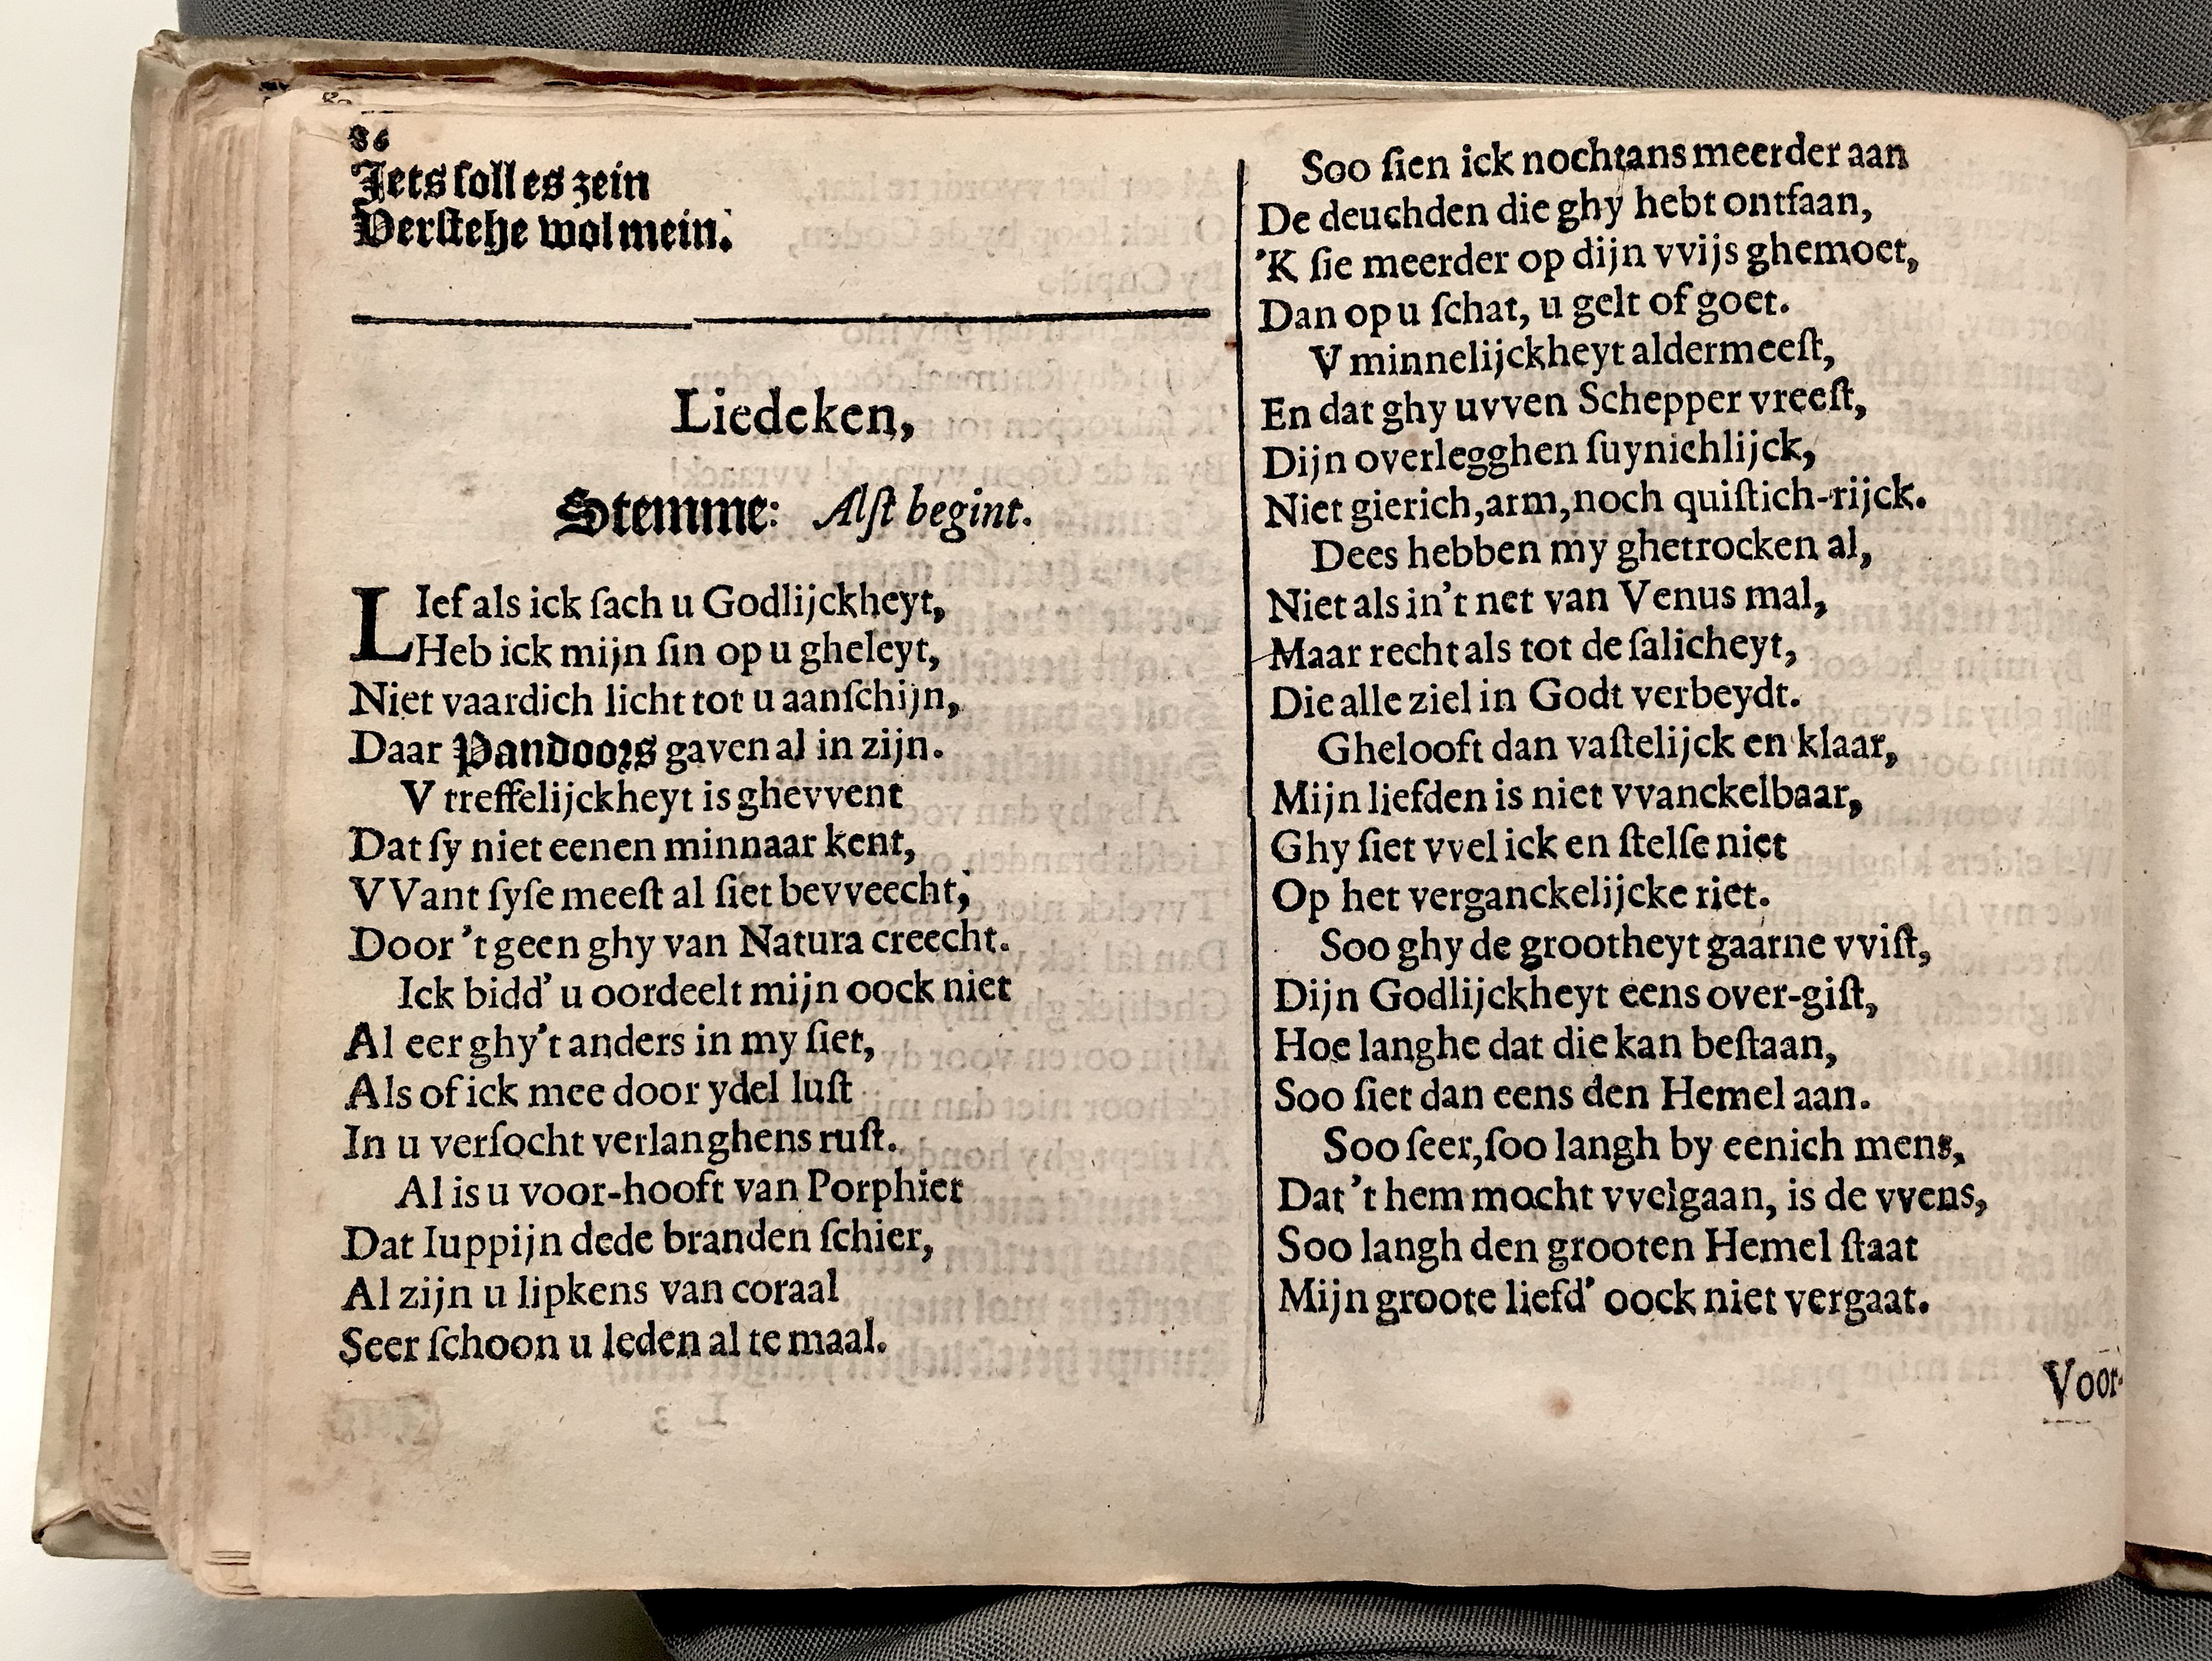 86
Jets ſoll es zein
Verſtehe wol mein.
Liedeken,
Stemme: Alſt begint.
LIef als ick ſach u Godlijckheyt,
Heb ick mijn ſin op u gheleyt,
Niet vaardich licht tot u aanſchijn,
Daar Pandoors gaven al in zijn.
V treffelijckheyt is ghevvent
Dat ſy niet eenen minnaar kent,
VVant ſyſe meeſt al ſiet bevveecht,
Door 't geen ghy van Natura creecht.
Ick bidd' u oordeelt mijn oock niet
Al eer ghy't anders in my ſiet,
Als of ick mee door ydel luſt
In u verſocht verlanghens ruſt.
Al is u voor-hooft van Porphier
Dat Iuppijn dede branden ſchier,
Al zijn u lipkens van coraal
Seer ſchoon u leden al te maal.
Soo ſien ick nochtans meerder aan
De deuchden die ghy hebt ontfaan,
'K ſie meerder op dijn vvijs ghemoet,
Dan op u ſchat, u gelt of goet.
V minnelijckheyt aldermeeſt,
En dat ghy uvven Schepper vreeſt,
Dijn overlegghen ſuynichlijck,
Niet gierich, arm, noch quiſtich-rijck.
Dees hebben my ghetrocken al,
Niet als in't net van Venus mal,
Maar recht als tot de ſalicheyt,
Die alle ziel in Godt verbeydt.
Ghelooft dan vaſtelijck en klaar,
Mijn liefden is niet vvanckelbaar,
Ghy ſiet vvel ick en ſtelſe niet
Op het verganckelijcke riet.
Soo ghy de grootheyt gaarne vviſt,
Dijn Godlijckheyt eens over-giſt,
Hoe langhe dat die kan beſtaan,
Soo ſiet dan eens den Hemel aan.
Soo ſeer, ſoo langh by eenich mens,
Dat 't hem mocht vvelgaan, is de vvens,
Soo langh den grooten Hemel ſtaat
Mijn groote liefd' oock niet vergaat.
Voor-